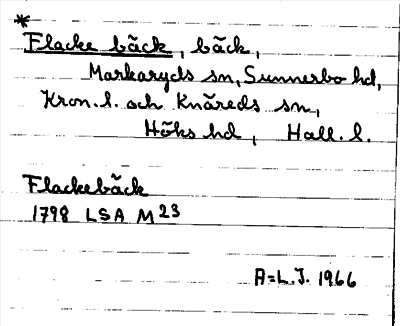 *
Flacke bäck, bäck,
Markaryds sn, Sunnerbo hd,
Kron. l. och Knäreds sn,
Höks hd, Hall. l.
Flackebäck
1798 LSA M23
A-L.J. 1966